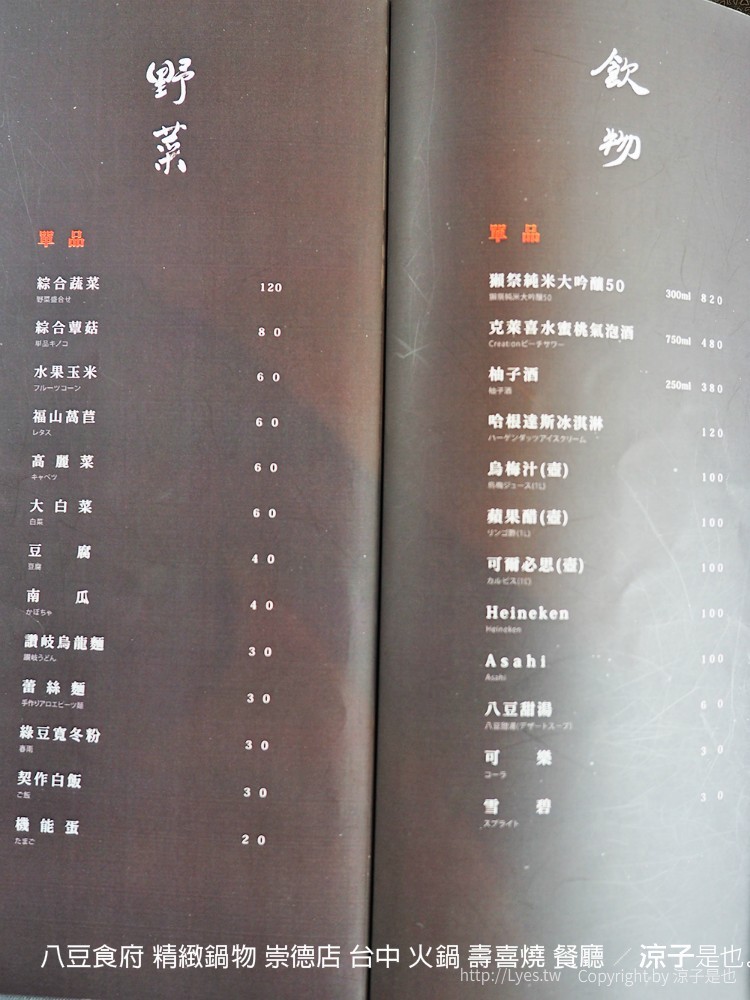 野菜
單品
綜合蔬菜 120
野菜盛合せ
綜合蕈菇 80
単品キノコ
水果玉米 60
フルーツコーン
福山萵苣 60
レタス
高麗菜 60
キャベツ
大白菜 60
白菜
豆腐 40
豆腐
南瓜 40
かぼちゃ
讚岐烏龍麵 30
讃岐うどん
蕾絲麵 30
手作りアロエビーツ麺
綠豆寬冬粉 30
春雨
契作白飯 30
ご飯
機能蛋 20
たまご
飲物
單品
獺祭純米大吟釀50 300ml 820
獺祭純米大吟醸50
克萊喜水蜜桃氣泡酒 750ml 480
Creationピーチサワー
柚子酒 250ml 380
柚子酒
哈根達斯冰淇淋 120
ハーゲンダッツアイスクリーム
烏梅汁(壺) 100
烏梅ジュース(1L)
蘋果醋(壺) 100
リンゴ酢(1L)
可爾必思(壺) 100
カルピス(1L)
Heineken 100
Heineken
Asahi 100
Asahi
八豆甜湯 60
八豆甜湯(デザートスープ)
可樂 30
コーラ
雪碧 30
スプライト
八豆食府 精緻鍋物 崇德店 台中 火鍋 壽喜燒 餐廳 ／ 涼子是也。
http://Lyes.tw Copyright by 涼子是也